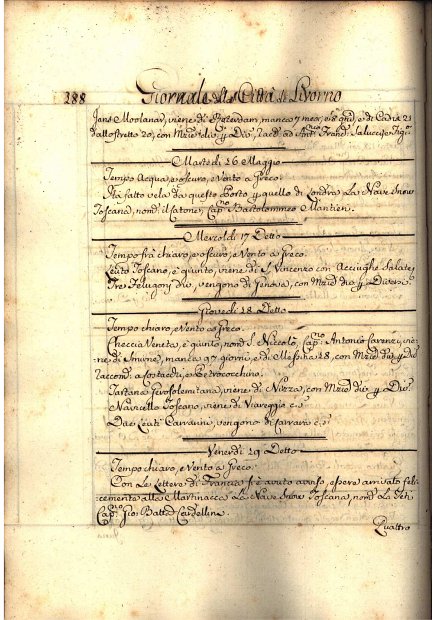 188 Giornale della Città di Livorno
Jans Moolanar, viene di Roterdam, manca 7 mesi, e di Cadice 21
dallo stretto 20, con Mrzie div. p. Divi, racd. ad Ant. Franc. Salucci e Figo
Martedì 26 Maggio
Tempo Acqua, e oscuro, e Vento a Greco.
Ha fatto vela da questo Porto p. quello di Londra La Nave Snow
Toscana, nom. il Catone, Capno Bartolommeo Mantieri.
Mercoldì 17 Detto
Tempo frà chiaro, e oscuro, e Vento a Greco.
Leuto Toscano, è giunto, viene di S. Vincenzo con Acciughe Salate
Tre Felugoni dio, vengono di Genova, con Mrzie die p. Diversi
Giovedì 28 Detto
Tempo chiaro, e Vento a Greco.
Checcia Veneta, è giunto, nom. S. Niccolò, Capno Antonio Carenzi, vie-
ne di Smirne, manca 97 giorni, e di Messina 28, con Mrzie die p. Divi
raccom. a Costachi, e Petrocochino.
Tartana Gerosolemitana, viene di Nizza, con Mrzie die p. Divi
Navicello Toscano, viene di Viareggio c.s
Due Leuti Carrarini, vengono di Carrara c.s
Venerdì 29 Detto
Tempo chiaro, e Vento a Greco.
Con Le Lettere di Francia s'è avuto avviso, essere arrivato feli-
cemente alla Martinicca La Nave Snow Toscana, nom. La Teti
Capno Gio: Batta Cardellini.
Quattro